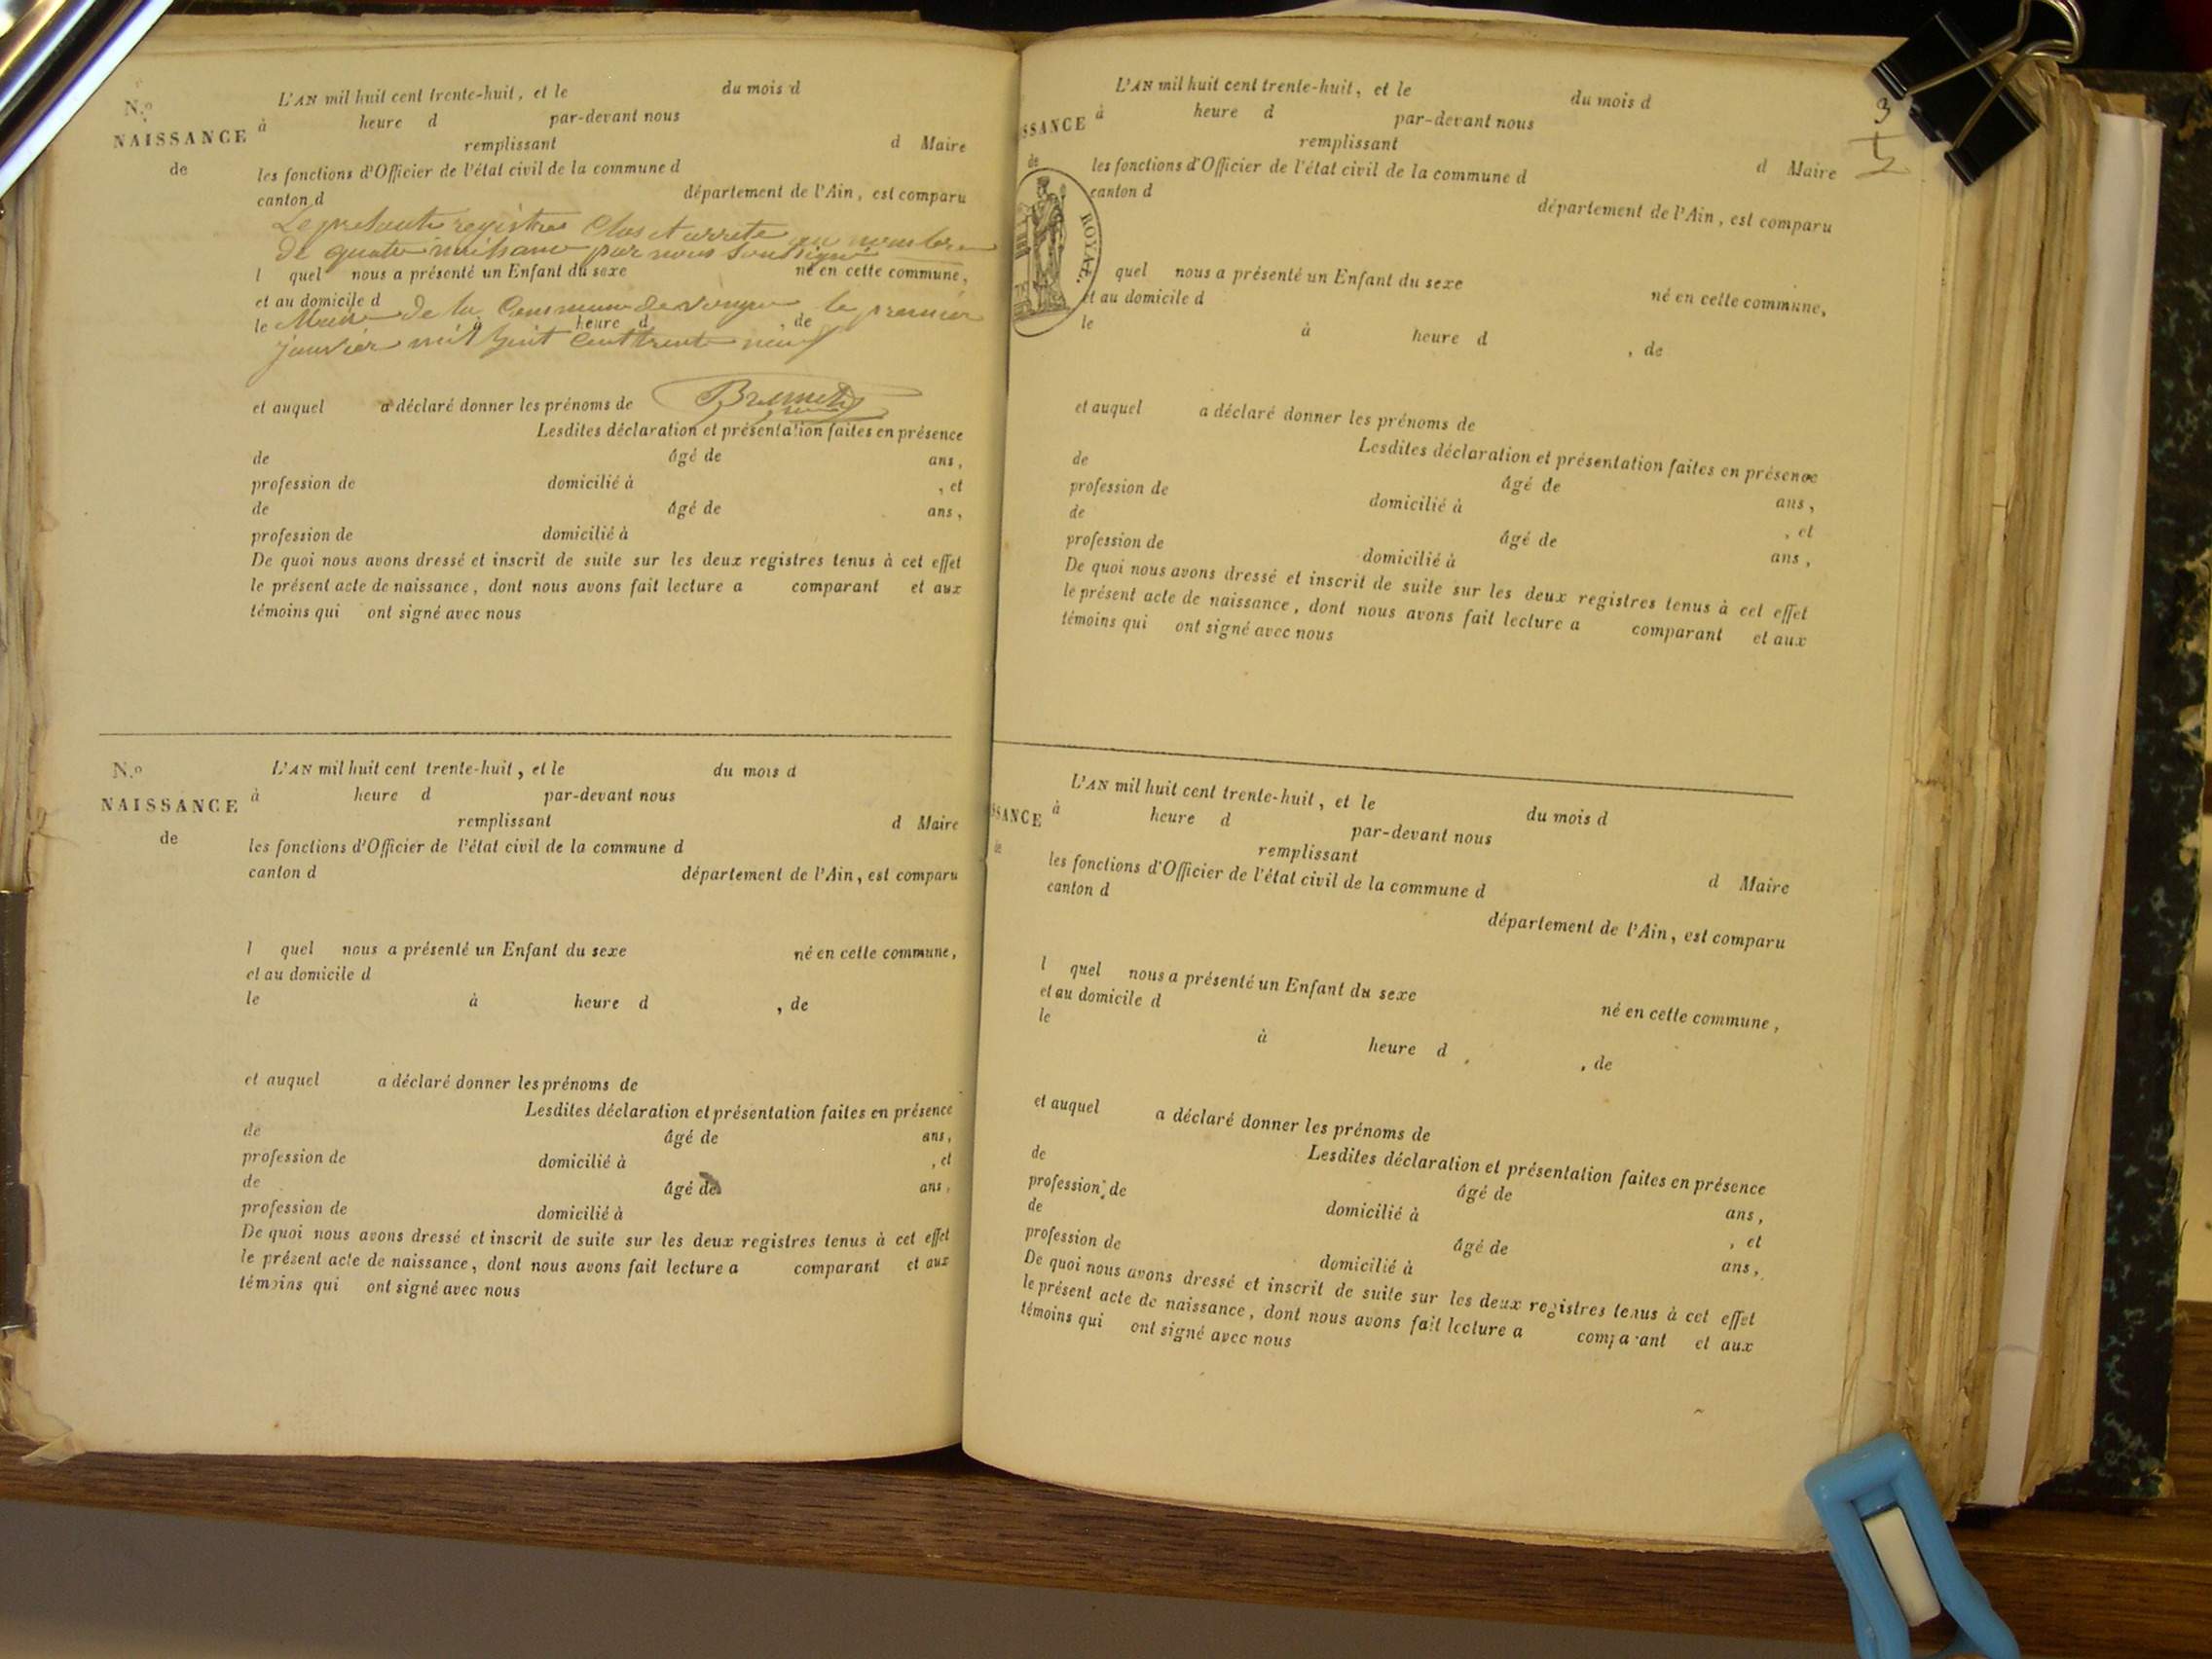 N.o
NAISSANCE
de
L'AN mil huit cent trente-huit, et le du mois d
à heure d par-devant nous
remplissant d Maire
les fonctions d'Officier de l'état civil de la commune d
canton d département de l'Ain, est comparu
Le présente registre Clos et arrete au nombre
de quatre naissance par nous soussigné
l quel nous a présenté un Enfant du sexe né en cette commune,
et au domicile d
Maire de la Commune de le premier
le à heure d , de
janvier mil huit cent trente neuf
et auquel a déclaré donner les prénoms de
Lesdites déclaration et présentation faites en présence
de âgé de ans,
profession de domicilié à , et
de âgé de ans,
profession de domicilié à
De quoi nous avons dressé et inscrit de suite sur les deux registres tenus à cet effet
le présent acte de naissance, dont nous avons fait lecture a comparant et aux
témoins qui ont signé avec nous
N.o
NAISSANCE
de
L'AN mil huit cent trente-huit, et le du mois d
à heure d par-devant nous
remplissant d Maire
les fonctions d'Officier de l'état civil de la commune d
canton d département de l'Ain, est comparu
l quel nous a présenté un Enfant du sexe né en cette commune,
et au domicile d
le à heure d , de
et auquel a déclaré donner les prénoms de
Lesdites déclaration et présentation faites en présence
de âgé de ans,
profession de domicilié à , et
de âgé de ans,
profession de domicilié à
De quoi nous avons dressé et inscrit de suite sur les deux registres tenus à cet effet
le présent acte de naissance, dont nous avons fait lecture a comparant et aux
témoins qui ont signé avec nous
3
SSANCE
de
ROYAL.
L'AN mil huit cent trente-huit, et le du mois d
à heure d par-devant nous
remplissant d Maire
les fonctions d'Officier de l'état civil de la commune d
canton d département de l'Ain, est comparu
quel nous a présenté un Enfant du sexe né en cette commune,
et au domicile d
le à heure d , de
et auquel a déclaré donner les prénoms de
Lesdites déclaration et présentation faites en présence
de âgé de ans,
profession de domicilié à , et
de âgé de ans,
profession de domicilié à
De quoi nous avons dressé et inscrit de suite sur les deux registres tenus à cet effet
le présent acte de naissance, dont nous avons fait lecture a comparant et aux
témoins qui ont signé avec nous
SSANCE
L'AN mil huit cent trente-huit, et le du mois d
à heure d par-devant nous
remplissant d Maire
les fonctions d'Officier de l'état civil de la commune d
canton d département de l'Ain, est comparu
l quel nous a présenté un Enfant du sexe né en cette commune,
et au domicile d
le à heure d , de
et auquel a déclaré donner les prénoms de
Lesdites déclaration et présentation faites en présence
de âgé de ans,
profession de domicilié à , et
de âgé de ans,
profession de domicilié à
De quoi nous avons dressé et inscrit de suite sur les deux registres tenus à cet effet
le présent acte de naissance, dont nous avons fait lecture a comparant et aux
témoins qui ont signé avec nous